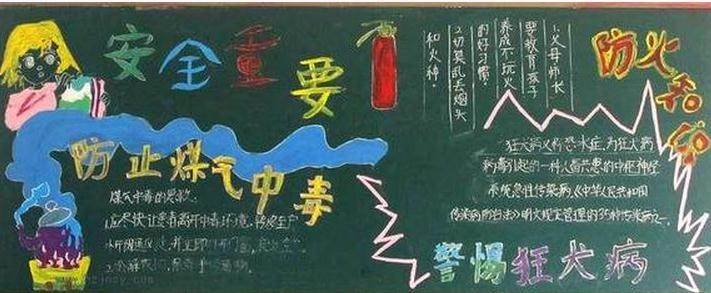 安全重要
防止煤气中毒
煤气中毒的急救
1.应尽快让患者离开中毒环境
并立即打开门窗
1.父母师长
要教育孩子
养成不玩火
的好习惯。
2.切莫乱丢烟头
和火种。
防火
狂犬病又称恐水症,为狂犬病
病毒引起的一种人畜共患的中枢神经
系统急性传染病,《中华人民共和国
传染病防治法》明文规定管理的35种传染病之一。
警惕狂犬病